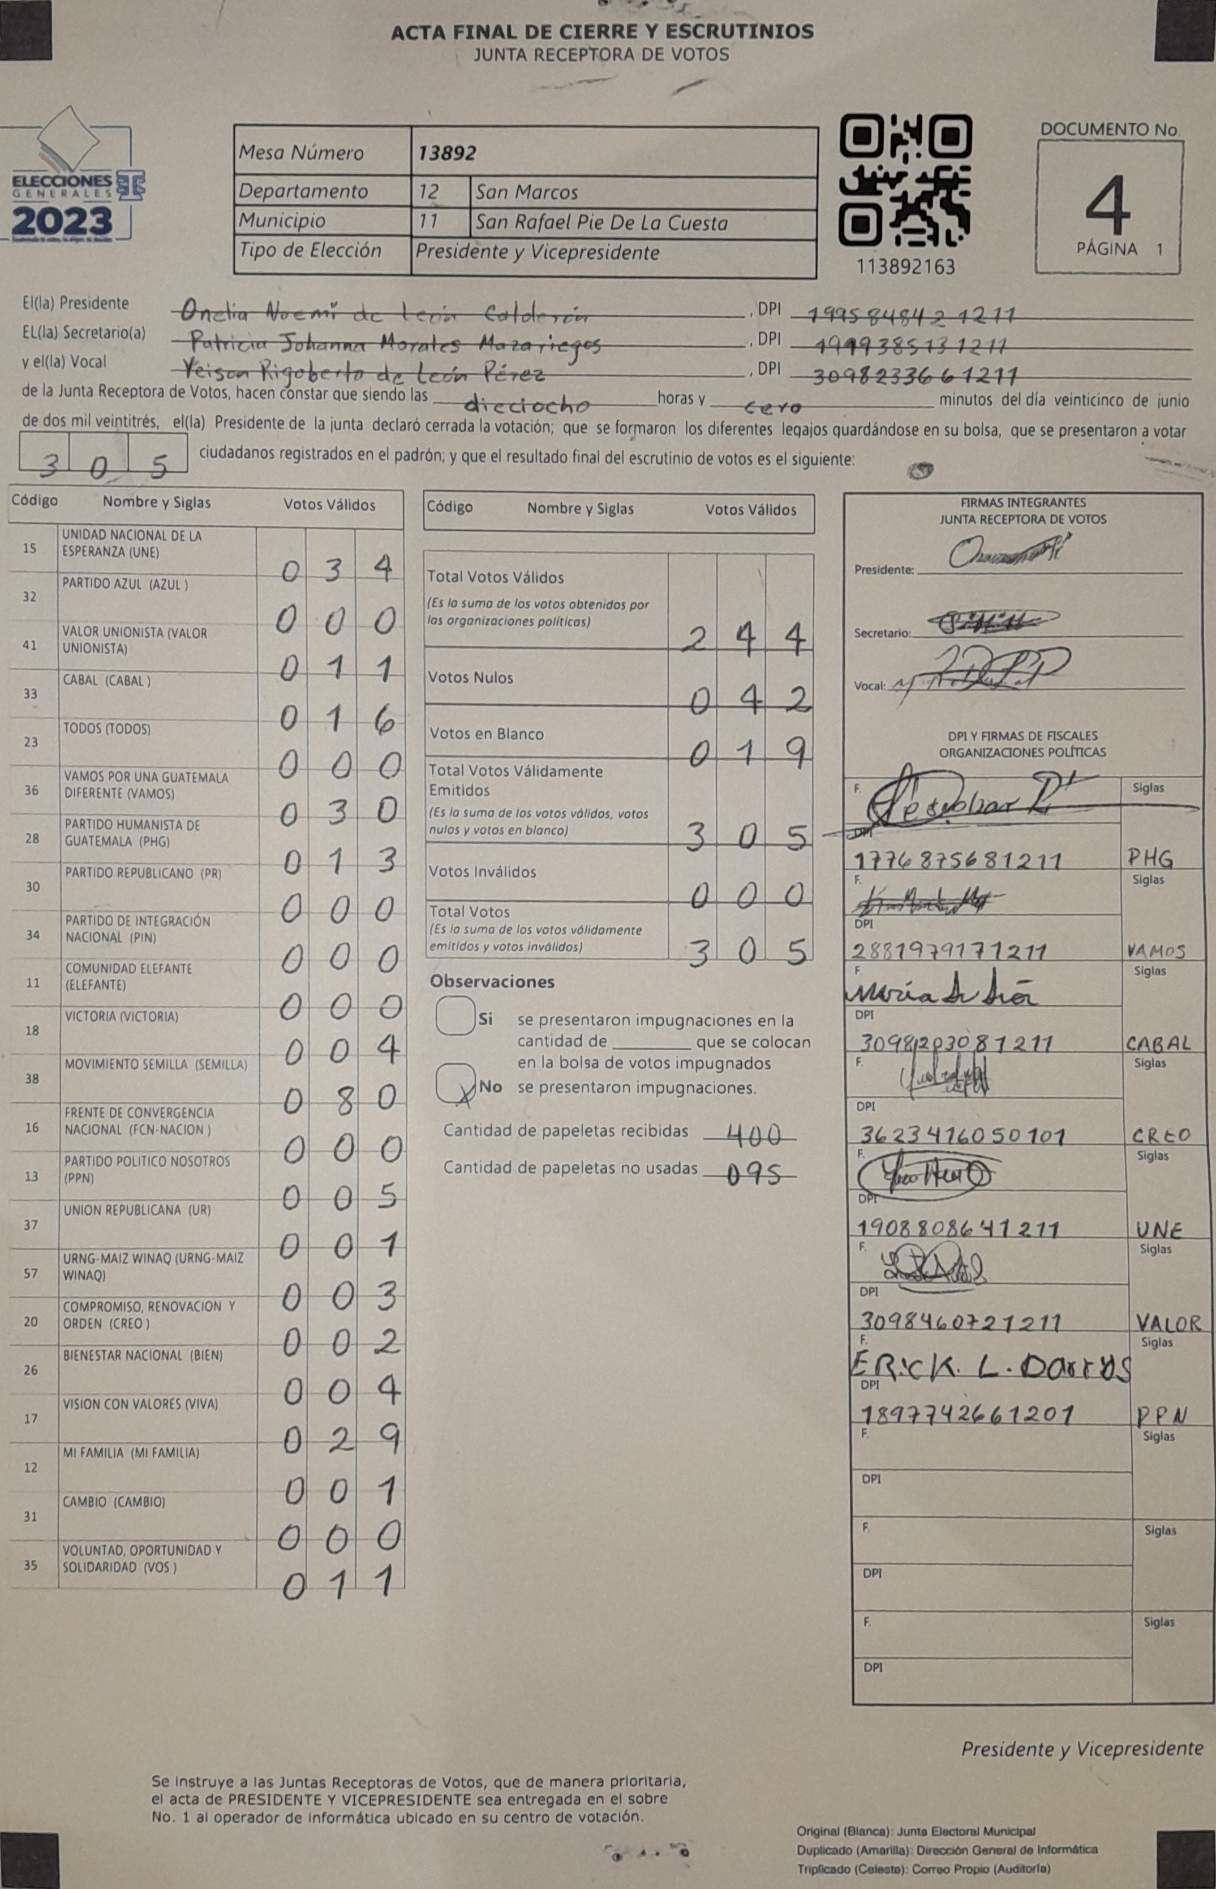 ACTA FINAL DE CIERRE Y ESCRUTINIOS
JUNTA RECEPTORA DE VOTOS
ELECCIONES
GENERALES
2023
Mesa Número 13892
Departamento 12 San Marcos
Municipio 11 San Rafael Pie De La Cuesta
Tipo de Elección Presidente y Vicepresidente
113892163
DOCUMENTO No.
4
PÁGINA 1
El(la) Presidente Onelia Noemí de León Calderón, DPI 1995848421211
EL(la) Secretario(a) Patricia Johanna Morales Mazariegos, DPI 1999385131211
y el(la) Vocal Yeison Rigoberto de León Pérez, DPI 3098233661211
de la Junta Receptora de Votos, hacen constar que siendo las dieciocho horas y cero minutos del día veinticinco de junio
de dos mil veintitrés, el(la) Presidente de la junta declaró cerrada la votación; que se formaron los diferentes legajos guardándose en su bolsa, que se presentaron a votar
305 ciudadanos registrados en el padrón; y que el resultado final del escrutinio de votos es el siguiente:
Código Nombre y Siglas Votos Válidos
15 UNIDAD NACIONAL DE LA
ESPERANZA (UNE) 034
32 PARTIDO AZUL (AZUL ) 000
41 VALOR UNIONISTA (VALOR
UNIONISTA) 011
33 CABAL (CABAL ) 016
23 TODOS (TODOS) 000
36 VAMOS POR UNA GUATEMALA
DIFERENTE (VAMOS) 030
28 PARTIDO HUMANISTA DE
GUATEMALA (PHG) 013
30 PARTIDO REPUBLICANO (PR) 000
34 PARTIDO DE INTEGRACIÓN
NACIONAL (PIN) 000
11 COMUNIDAD ELEFANTE
(ELEFANTE) 000
18 VICTORIA (VICTORIA) 004
38 MOVIMIENTO SEMILLA (SEMILLA) 080
16 FRENTE DE CONVERGENCIA
NACIONAL (FCN-NACION ) 000
13 PARTIDO POLITICO NOSOTROS
(PPN) 005
37 UNION REPUBLICANA (UR) 001
57 URNG-MAIZ WINAQ (URNG-MAIZ
WINAQ) 003
20 COMPROMISO, RENOVACION Y
ORDEN (CREO ) 002
26 BIENESTAR NACIONAL (BIEN) 004
17 VISION CON VALORES (VIVA) 029
12 MI FAMILIA (MI FAMILIA) 001
31 CAMBIO (CAMBIO) 000
35 VOLUNTAD, OPORTUNIDAD Y
SOLIDARIDAD (VOS ) 011
Código Nombre y Siglas Votos Válidos
Total Votos Válidos
(Es la suma de los votos obtenidos por
las organizaciones políticas) 244
Votos Nulos 042
Votos en Blanco 019
Total Votos Válidamente
Emitidos
(Es la suma de los votos válidos, votos
nulos y votos en blanco) 305
Votos Inválidos 000
Total Votos
(Es la suma de los votos válidamente
emitidos y votos inválidos) 305
Observaciones
Si se presentaron impugnaciones en la
cantidad de ________ que se colocan
en la bolsa de votos impugnados
X No se presentaron impugnaciones.
Cantidad de papeletas recibidas 400
Cantidad de papeletas no usadas 095
FIRMAS INTEGRANTES
JUNTA RECEPTORA DE VOTOS
Presidente:
Secretario:
Vocal:
DPI Y FIRMAS DE FISCALES
ORGANIZACIONES POLÍTICAS
F. Siglas
DPI
1776875681211 PHG
F. Siglas
DPI
2881979171211 VAMOS
F. Siglas
María
DPI
3098203081211 CABAL
F. Siglas
DPI
3623416050101 CREO
F. Siglas
DPI
1908808641211 UNE
F. Siglas
DPI
3098460721211 VALOR
F. Siglas
ERICK. L.
DPI
1897742661201 PPN
F. Siglas
DPI
F. Siglas
DPI
F. Siglas
DPI
Presidente y Vicepresidente
Se instruye a las Juntas Receptoras de Votos, que de manera prioritaria,
el acta de PRESIDENTE Y VICEPRESIDENTE sea entregada en el sobre
No. 1 al operador de informática ubicado en su centro de votación.
Original (Blanca): Junta Electoral Municipal
Duplicado (Amarilla): Dirección General de Informática
Triplicado (Celeste): Correo Propio (Auditoría)